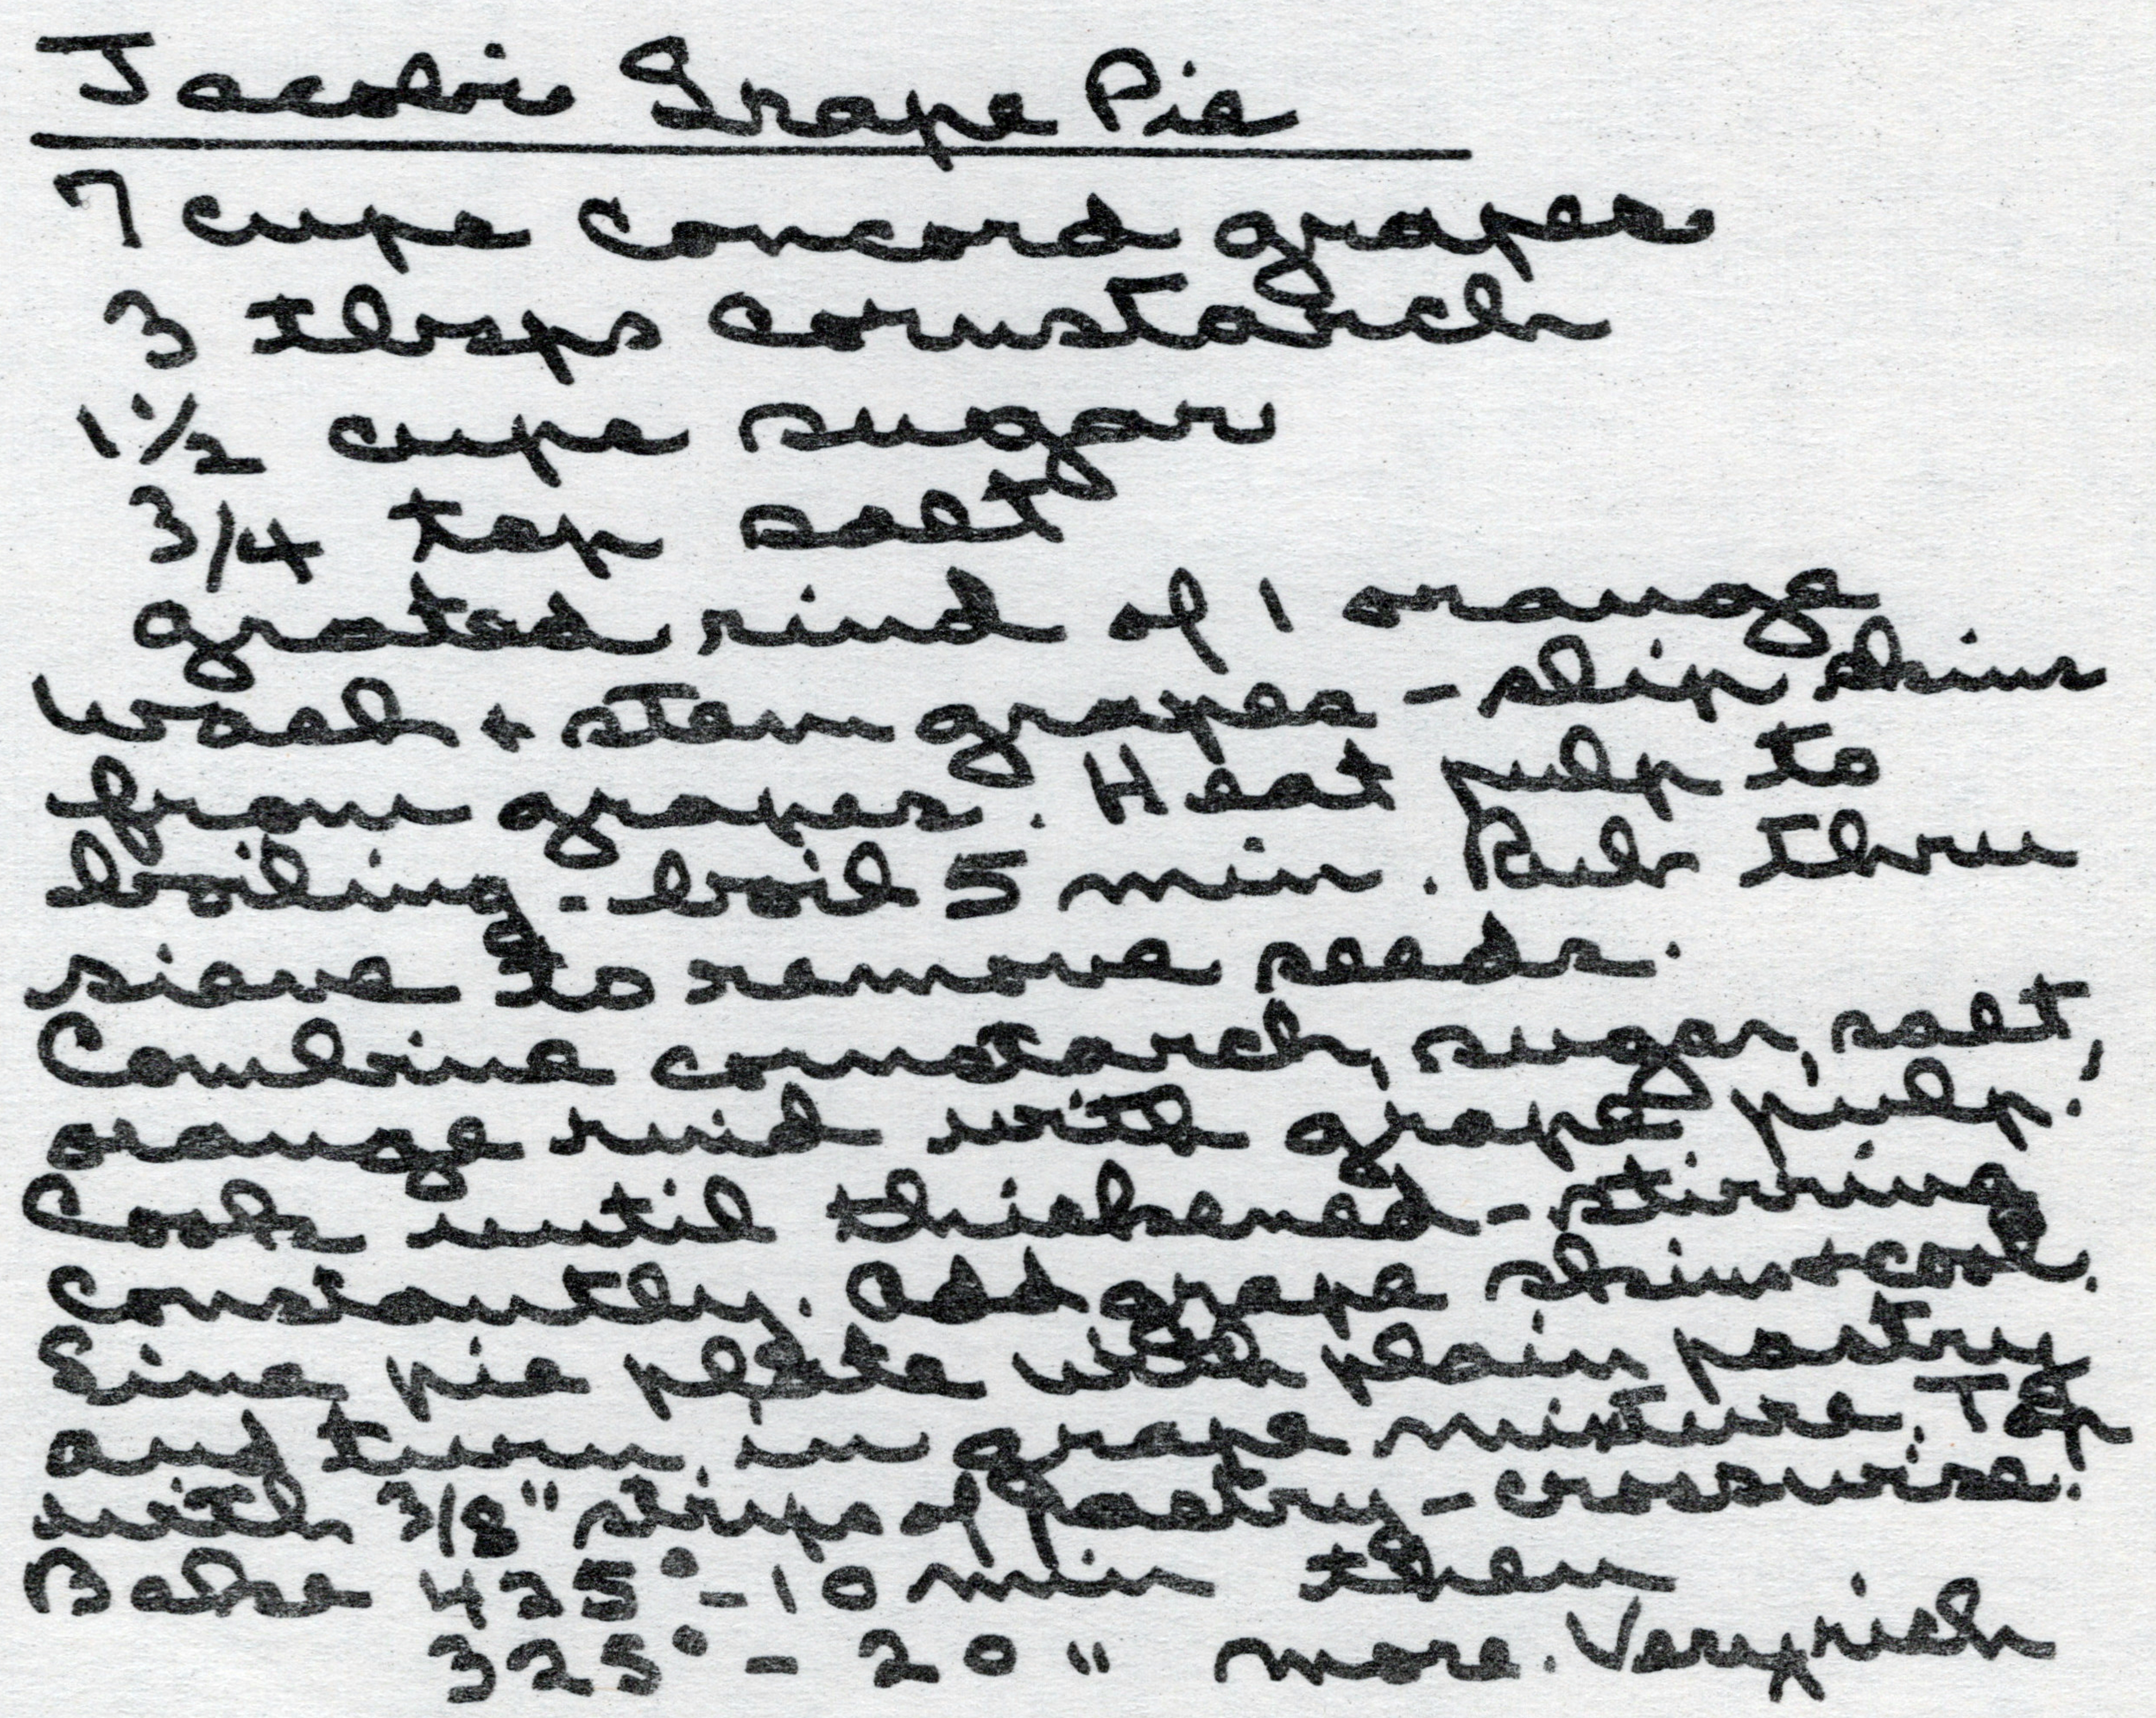 Jacobi Grape Pie
7 cups concord grapes
3 tbsps cornstarch
1 1/2 cups sugar
3/4 tsp salt
grated rind of 1 orange
Wash + stem grapes - slip skins
from grapes. Heat pulp to
boiling - boil 5 min. Rub thru
sieve to remove seeds.
Combine cornstarch, sugar, salt,
orange rind with grape pulp.
Cook until thickened - stirring
constantly. Add grape skins + cool.
Line pie plate with plain pastry
and turn in grape mixture. Top
with 3/8" strips of pastry - crosswise.
Bake 425° - 10 min then
325° - 20 " more. Very rich